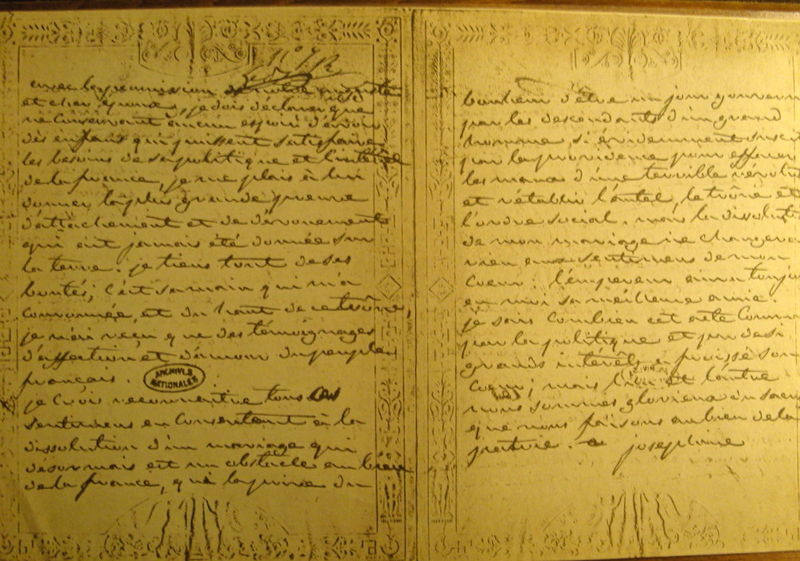 nº 712
avec la permission de notre auguste
et cher epoux, je dois déclarer que
ne conservant aucun espoir d'avoir
des enfans qui puissent satisfaire
les besoins de sa politique et l'intérêt
de la france, je me plais à lui
donner la plus grande preuve
d'attachement et de dévouement
qui ait jamais été donnée sur
la terre. je tiens tout de ses
bontés; c'est sa main qui m'a
couronnée, et du haut de ce trône,
je n'ai reçu que des témoignages
d'affection et d'amour du peuple
français.
ARCHIVES
NATIONALES
je crois reconnoitre tous ces
sentimens en consentant à la
dissolution d'un mariage qui
desormais est un obstacle au bien
de la france, qui la prive du
bonheur d'être un jour gouvern
par les descendants d'un grand
homme, si évidemment suscit
par la providence pour effacer
les maux d'une terrible revolu
et rétablir l'autel, le trône et
l'ordre social. mais la dissoluti
de mon mariage ne changera
rien aux sentimens de mon
coeur: l'empereur aura toujou
en moi sa meilleure amie.
je sais combien cet acte comm
par la politique et par de si
grands intérêts a froissé son
coeur; mais l'un et l'autre
nous sommes glorieux du sacri
que nous faisons au bien de la
patrie. josephine